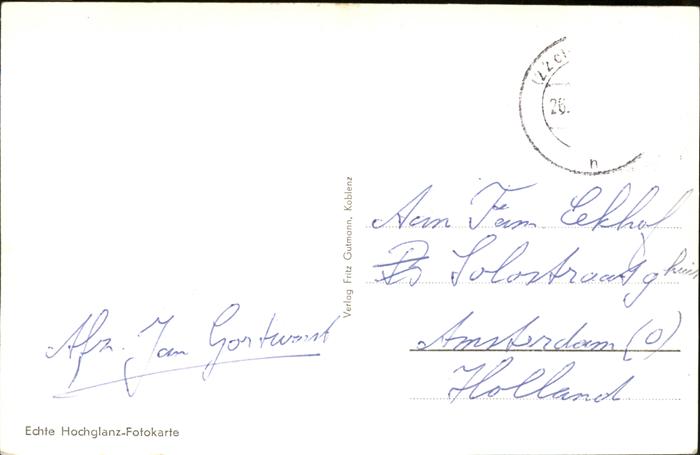 26.
n
Verlag Fritz Gutmann, Koblenz
Aan Fam Eekhof
Solostraat 9 huis
Amsterdam (O)
Holland
Afz. Jan Gortworst
Echte Hochglanz-Fotokarte